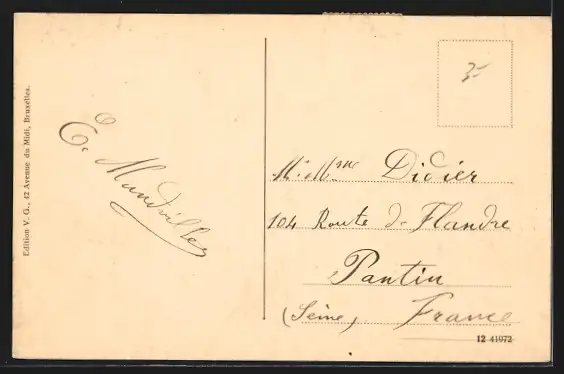 Edition V. G., 42 Avenue du Midi, Bruxelles.
E. Mandvilles
3-
M. & Mme Didier
104 Route de Flandre
Pantin
(Seine) France
12 41072